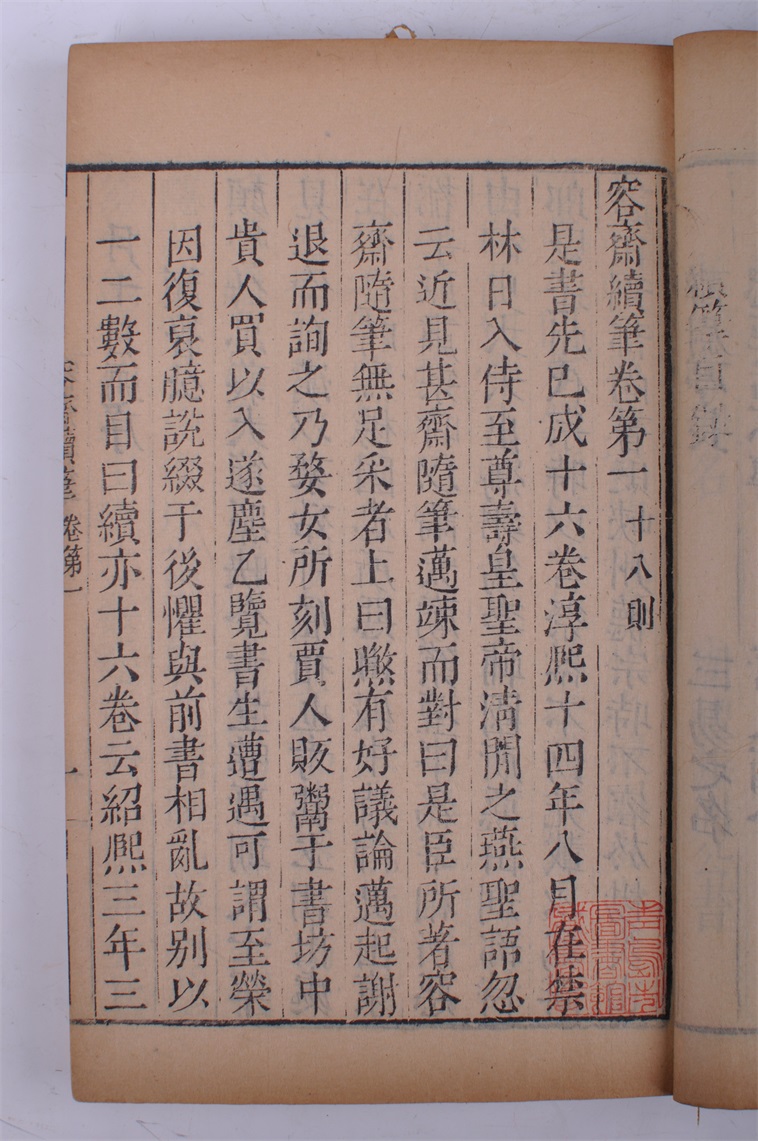 容齋續筆卷第一 十八則
是書先已成十六卷淳熈十四年八月在禁
林日入侍至尊壽皇聖帝清閒之燕聖語忽
云近見甚齋隨筆邁竦而對曰是臣所著容
齋隨筆無足采者上曰㬗有好議論邁起謝
退而詢之乃婺女所刻賈人販鬻于書坊中
貴人買以入遂塵乙覽書生遭遇可謂至榮
因復裒臆說綴于後懼與前書相亂故别以
一二數而目曰續亦十六卷云紹熈三年三
容齋續筆 卷第一
一
續筆目錄
青島市
圖書館
藏